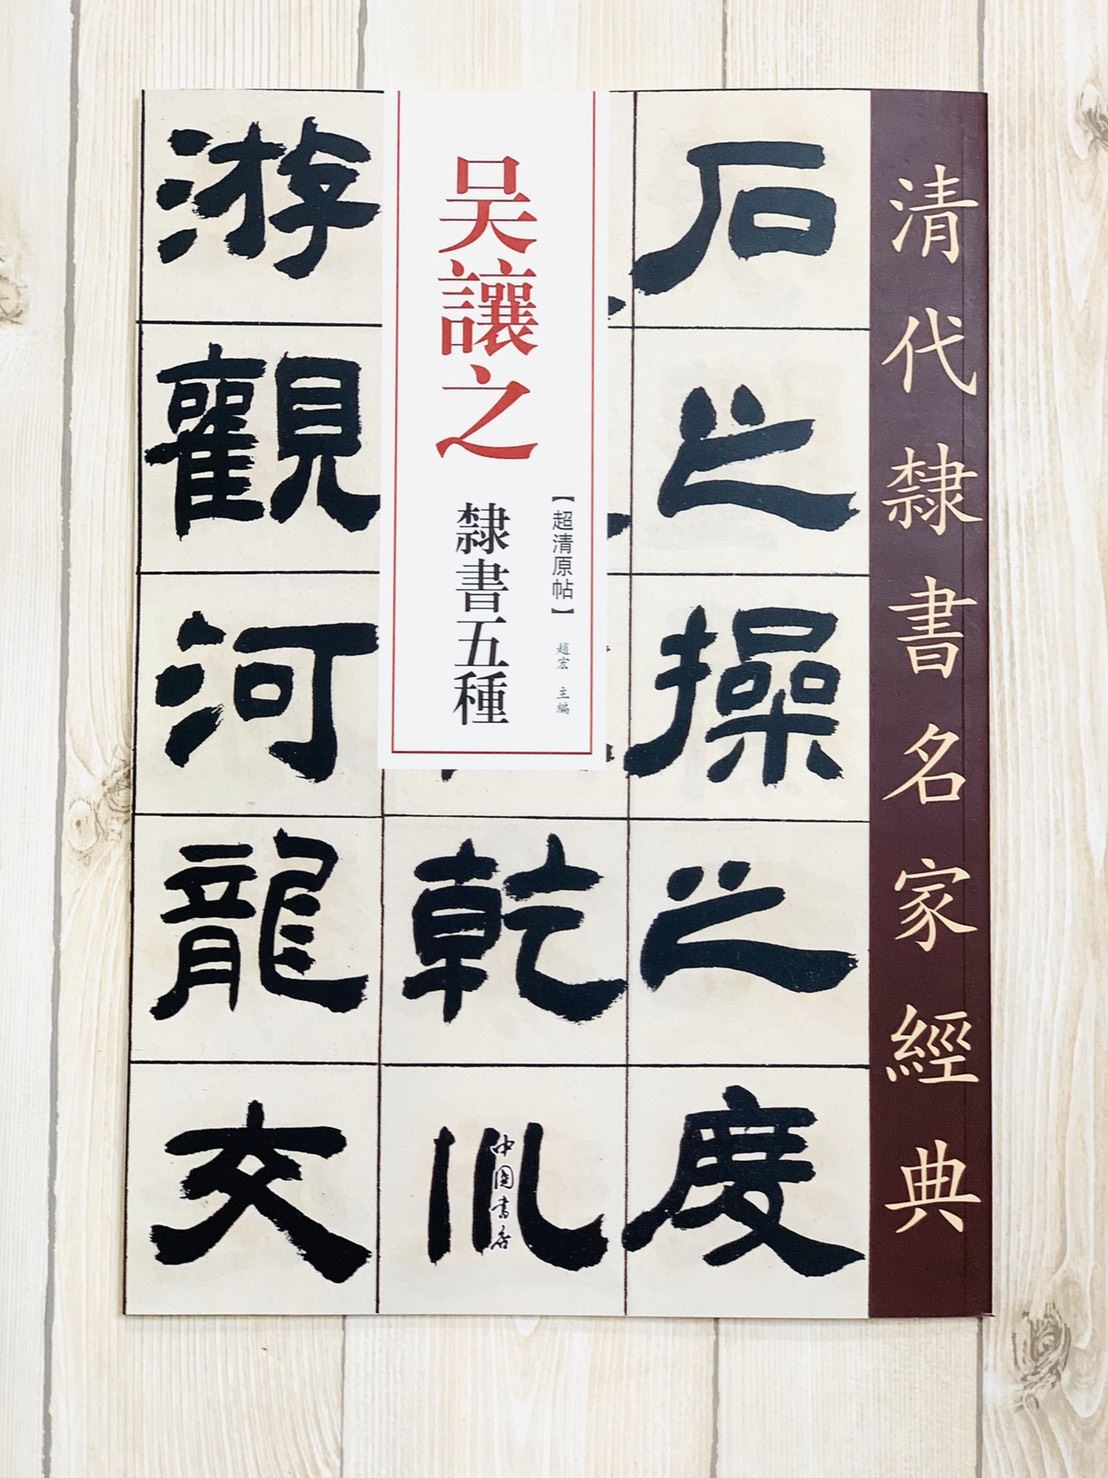 清代隸書名家經典
石之操之度
吴讓之
隸書五種
【超清原帖】
趙宏 主編
乾
中國書店
游觀河龍交